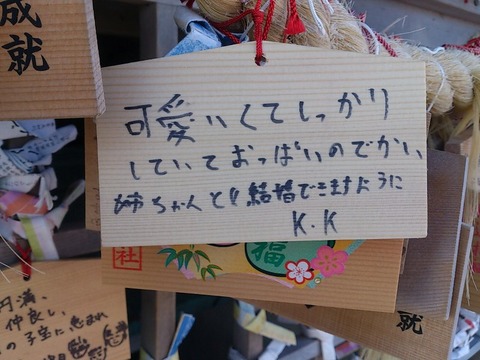 成就
可愛いくてしっかり
していておっぱいのでかい
姉ちゃんと結婚できますように
K.K
社
福
円満、
仲良し、
の子宝に恵まれ
就